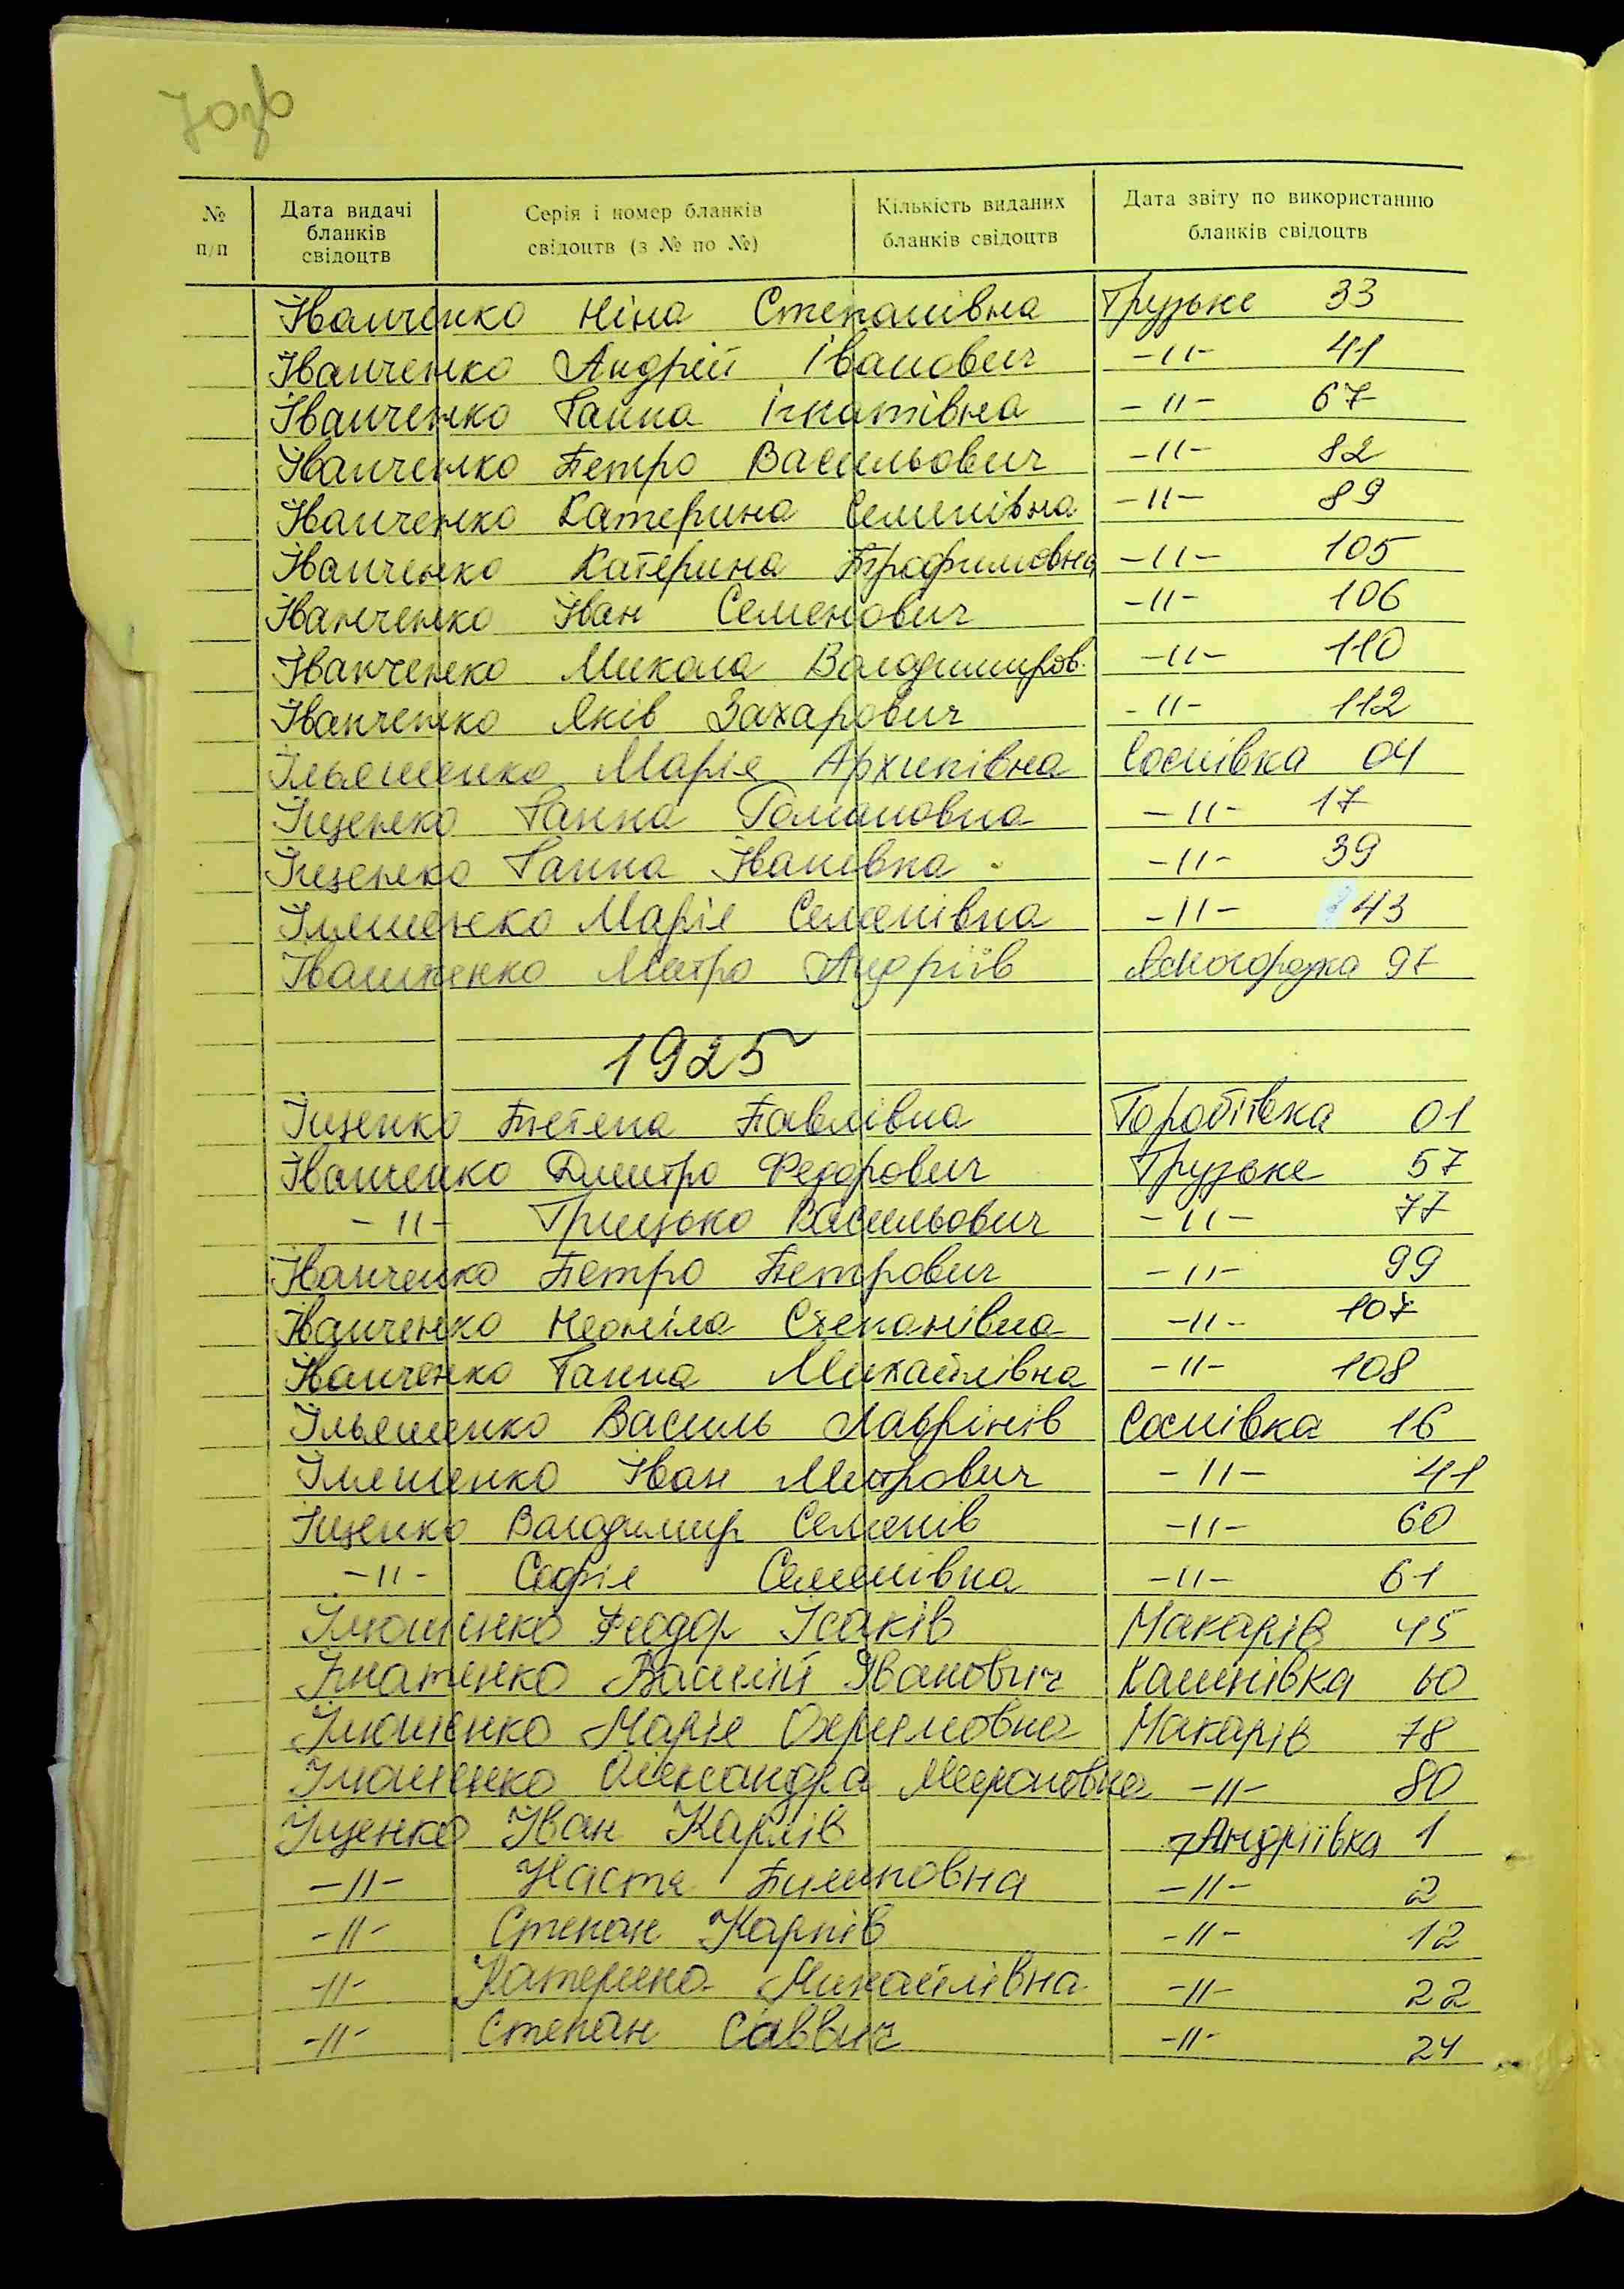 70зв
№ п/п Дата видачі бланків свідоцтв Серія і номер бланків свідоцтв (з № по №) Кількість виданих бланків свідоцтв Дата звіту по використанню бланків свідоцтв
Іванченко Ніна Степанівна Грузьке 33
Іванченко Андрій Іванович -//- 41
Іванченко Ганна Ігнатівна -//- 67
Іванченко Петро Васильович -//- 82
Іванченко Катерина Семенівна -//- 89
Іванченко Катерина Трофимовна -//- 105
Іванченко Іван Семенович -//- 106
Іванченко Микола Володимиров. -//- 110
Іванченко Яків Захарович -//- 112
Ільяшенко Марія Архипівна Соснівка 04
Іщенко Ганна Романовна -//- 17
Іщенко Ганна Іванівна -//- 39
Іляшенко Марія Семенівна -//- 43
Іващенко Митро Андріїв Ясногородка 97
1925
Іщенко Павлівна Горобіївка 01
Іванченко Дмитро Федорович Грузьке 57
-//- Грицько Васильович -//- 77
Іванченко Петро Петрович -//- 99
Іванченко Неоніла Степанівна -//- 107
Іванченко Ганна Михайлівна -//- 108
Ільяшенко Василь Лаврінів Соснівка 16
Іляшенко Іван Митрович -//- 41
Іщенко Володимир Семенів -//- 60
-//- Софія Семенівна -//- 61
Ілюшенко Федор Ісаків Макарів 45
Ігнатенко Василій Іванович Калинівка 60
Ілюшенко Марія Охримовна Макарів 78
Ілюшенко Олександра Мироновна -//- 80
Іщенко Іван Карпів Андріївка 1
-//- Настя Пилиповна -//- 2
-//- Степан Карпів -//- 12
-//- Катерина Михайлівна -//- 22
-//- Степан Саввич -//- 24